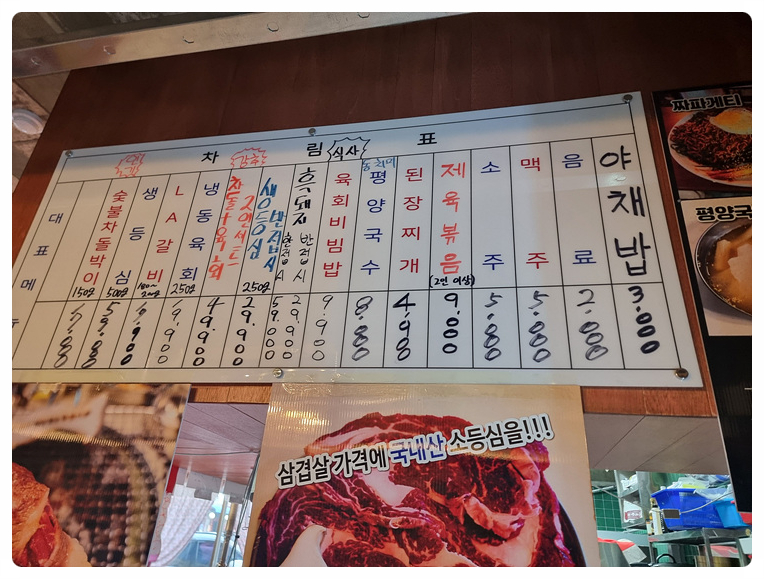 차림표
강추
식사
대표메뉴
숯불차돌박이
150g
생등심
500g
LA갈비
냉동육회
250g
차돌+육회
2인세트
29,900
생등심 반접시
250g
흑돼지
한접시
반접시
육회비빔밥
9,900
동치미
평양국수
8,000
된장찌개
4,900
제육볶음
(2인 이상)
9,000
소주
5,000
맥주
5,000
음료
2,000
야채밥
3,000
짜파게티
평양국
삼겹살 가격에 국내산 소등심을!!!